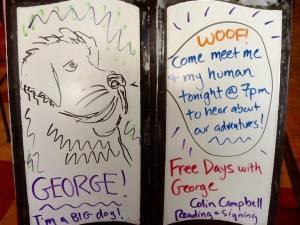 GEORGE!
I'm a BIG dog!
WOOF!
Come meet me
+ my human
tonight @ 7pm
to hear about
our adventures!
Free Days with
George
Colin Campbell
Reading + Signing